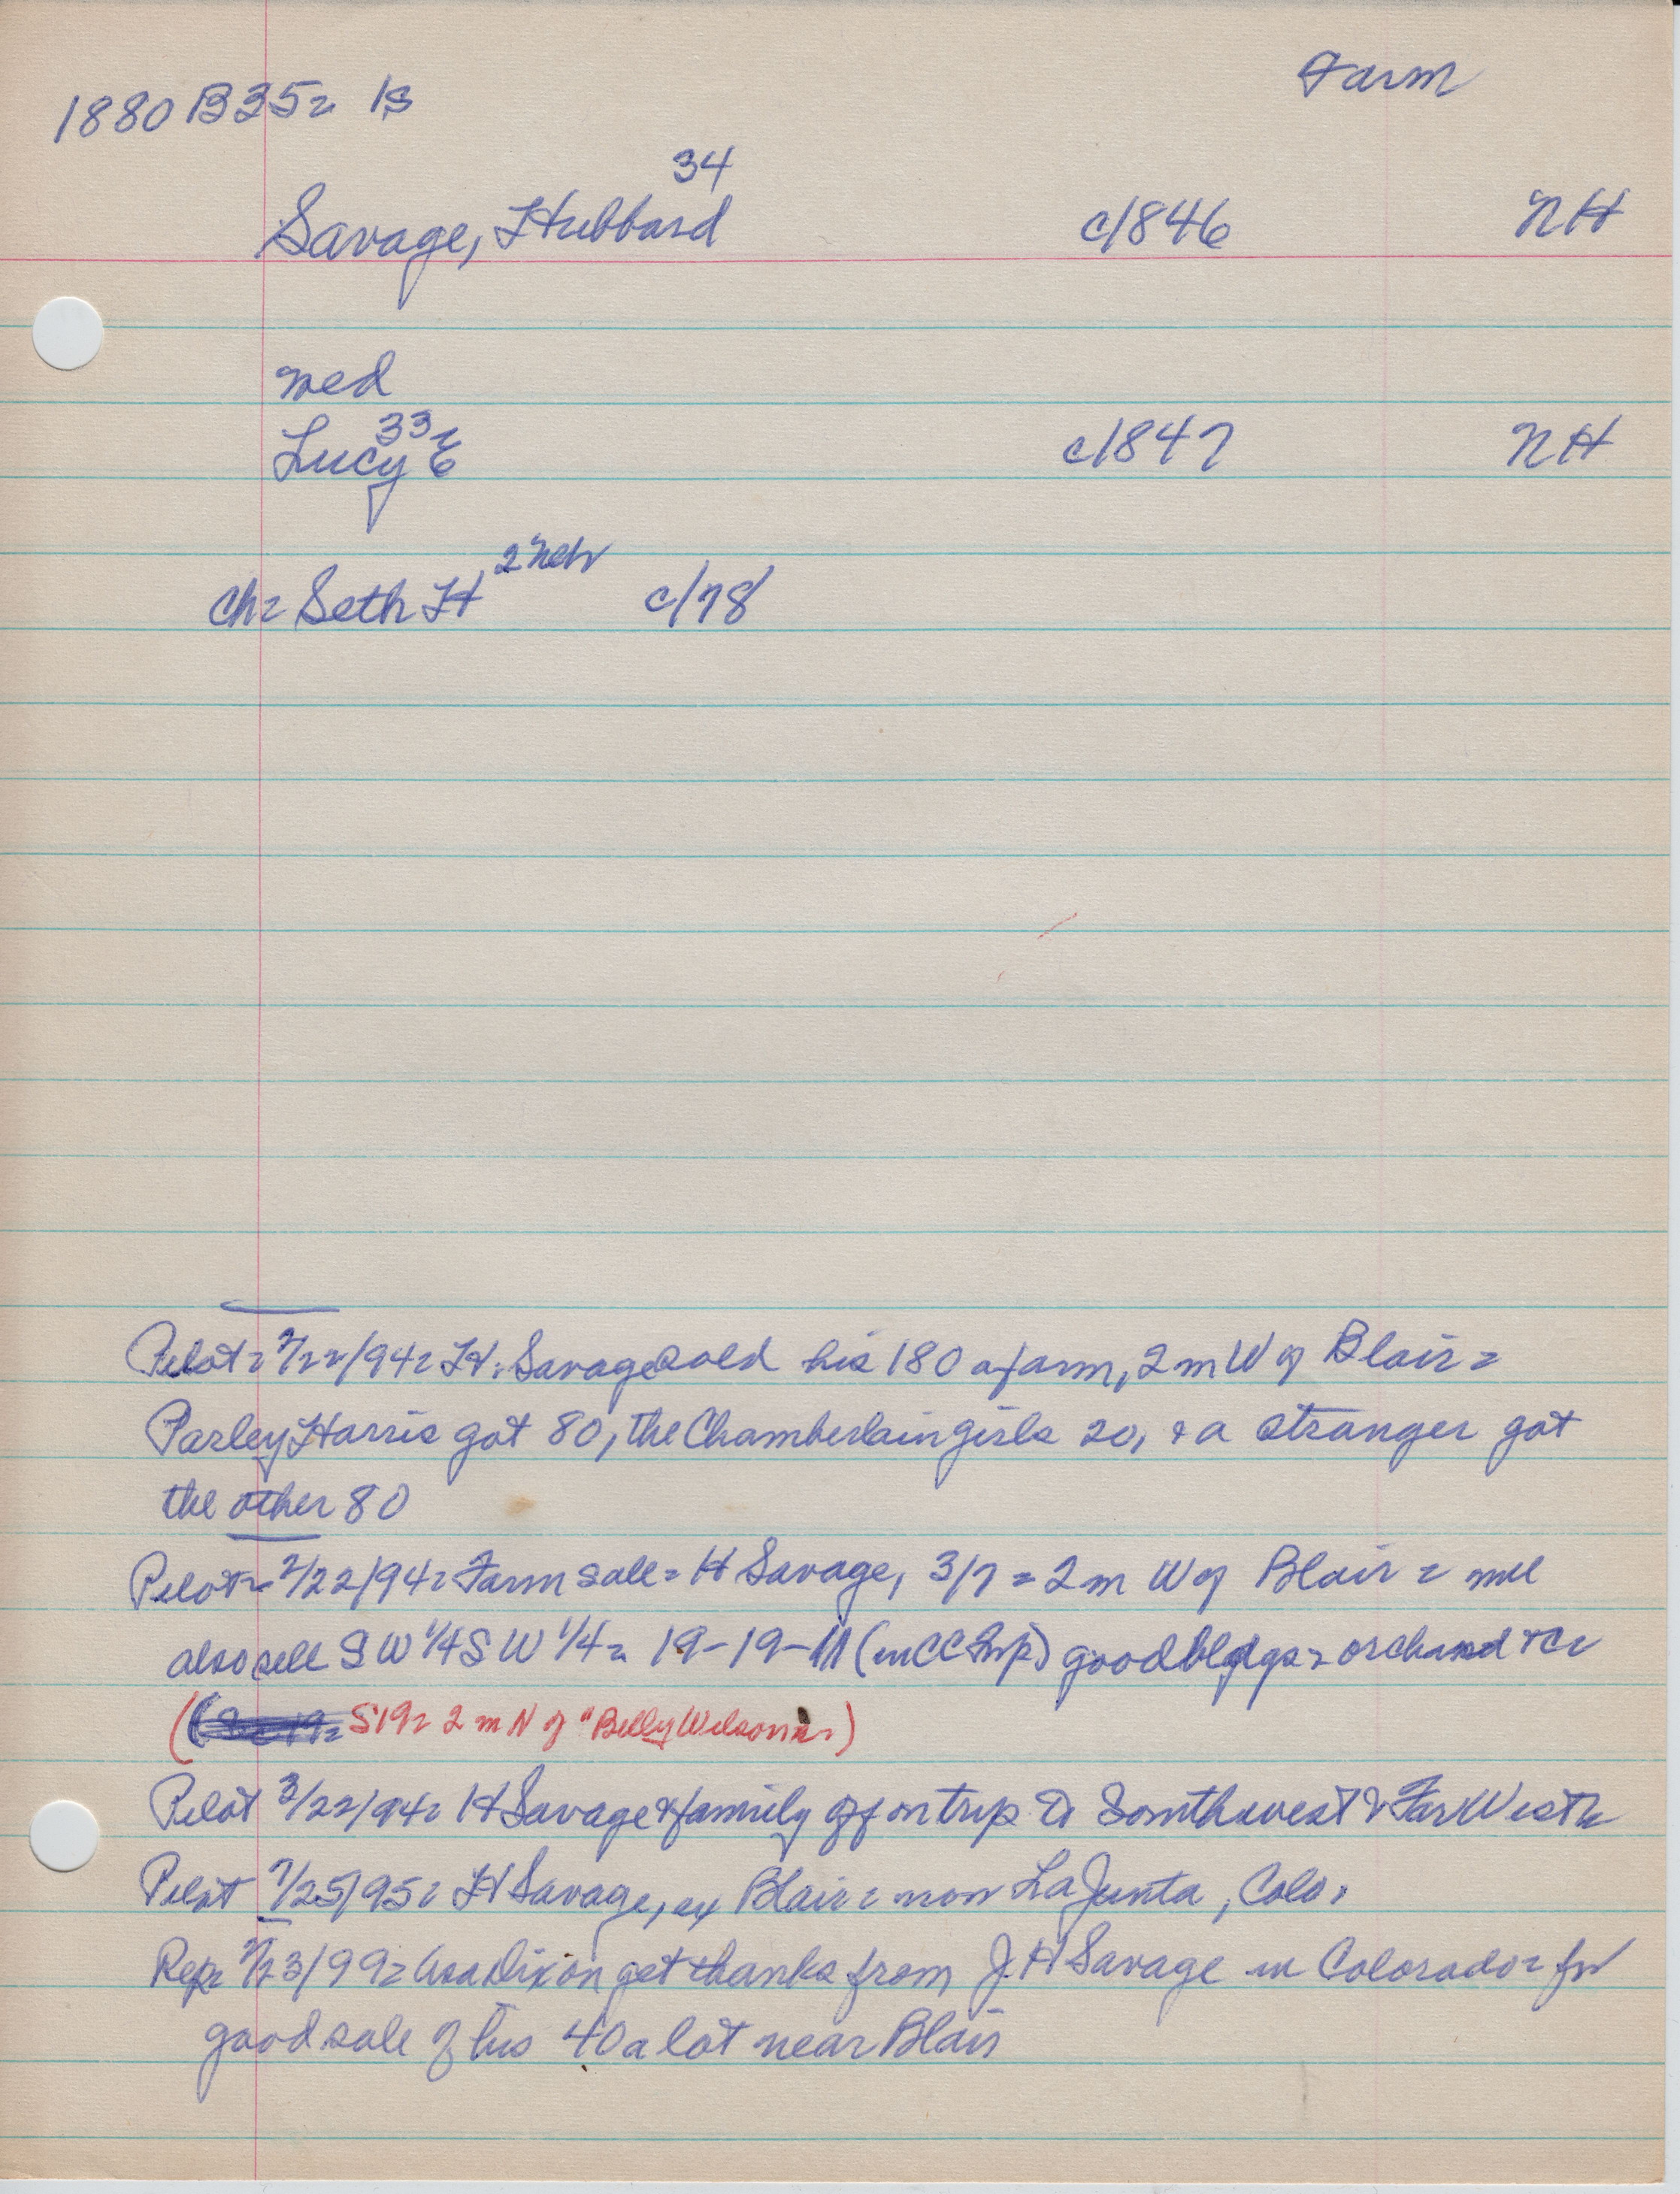 Farm
1880 B35= 1s
34
Savage, Hubbard c/1846 NH
med
33
Lucy E c/1847 NH
2 Neb
ch= Seth H c/78
Pilot= 2/22/94= H. Savage sold his 180 a farm, 2 m W of Blair=
Parley Harris got 80, the Chamberlain girls 20, & a stranger got
the other 80
Pilot= 2/22/94= Farm sale= H Savage, 3/7= 2 m W of Blair=
also sell SW 1/4 SW 1/4= 19-19-11 (in CC Twp) good bldgs= orchard &c=
(S19= 2 m N of "Billy Wilsons)
Pilot 3/22/94= H Savage & family off on trip to Southwest & Far West=
Pilot 7/25/95= H Savage, ex Blair= now La Junta, Colo.
Rep= /23/99= Asa Dixon get thanks from J. H Savage in Colorado= for
good sale of his 40 a lot near Blair